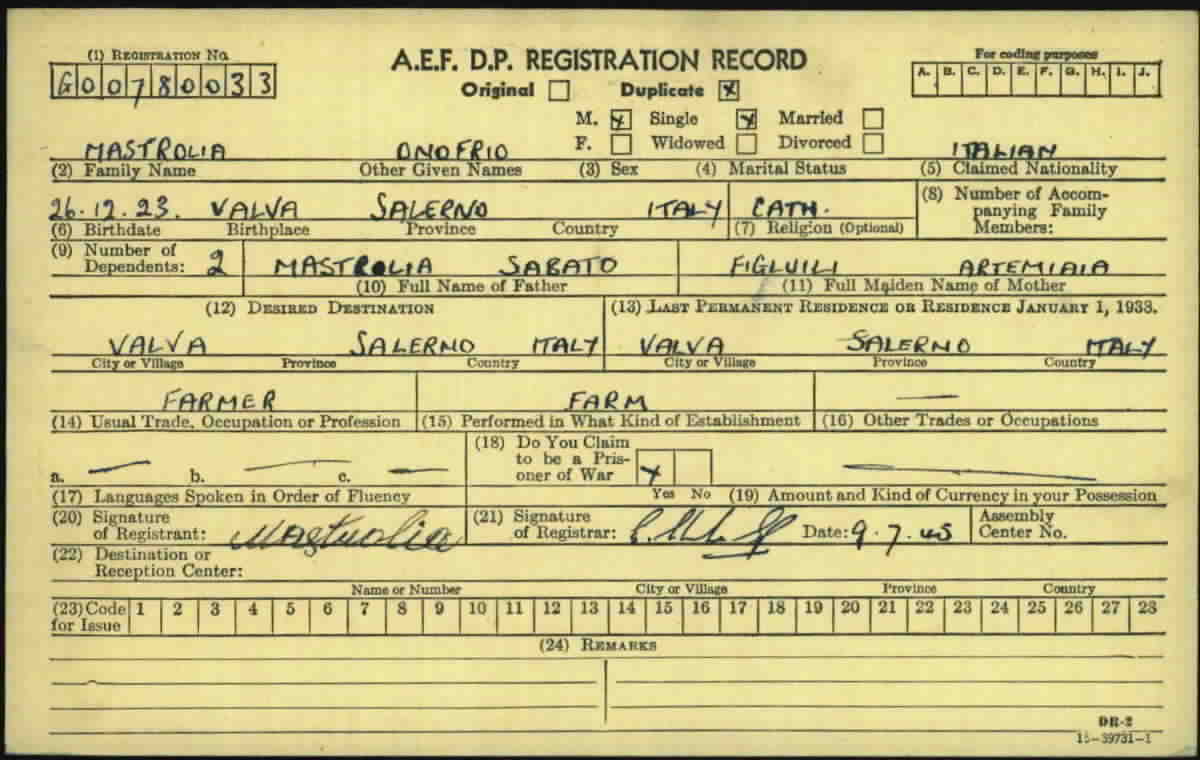 (1) REGISTRATION No.
G00780033
A.E.F. D.P. REGISTRATION RECORD
Original Duplicate X
For coding purposes
A. B. C. D. E. F. G. H. I. J.
M. X Single X Married
F. Widowed Divorced
MASTROLIA ONOFRIO ITALIAN
(2) Family Name Other Given Names (3) Sex (4) Marital Status (5) Claimed Nationality
26.12.23. VALVA SALERNO ITALY CATH.
(6) Birthdate Birthplace Province Country (7) Religion (Optional)
(8) Number of Accompanying Family Members:
(9) Number of Dependents: 2
MASTROLIA SABATO
(10) Full Name of Father
FIGLUILI ARTEMIAIA
(11) Full Maiden Name of Mother
(12) DESIRED DESTINATION
(13) LAST PERMANENT RESIDENCE OR RESIDENCE JANUARY 1, 1938.
VALVA SALERNO ITALY VALVA SALERNO ITALY
City or Village Province Country City or Village Province Country
FARMER FARM —
(14) Usual Trade, Occupation or Profession (15) Performed in What Kind of Establishment (16) Other Trades or Occupations
a. — b. — c. —
(17) Languages Spoken in Order of Fluency
(18) Do You Claim to be a Prisoner of War X
Yes No
—
(19) Amount and Kind of Currency in your Possession
(20) Signature of Registrant: Mastrolia
(21) Signature of Registrar:
Date: 9.7.45
Assembly Center No.
(22) Destination or Reception Center:
Name or Number City or Village Province Country
(23) Code for Issue 1 2 3 4 5 6 7 8 9 10 11 12 13 14 15 16 17 18 19 20 21 22 23 24 25 26 27 28
(24) REMARKS
DR-2
16-39731-1